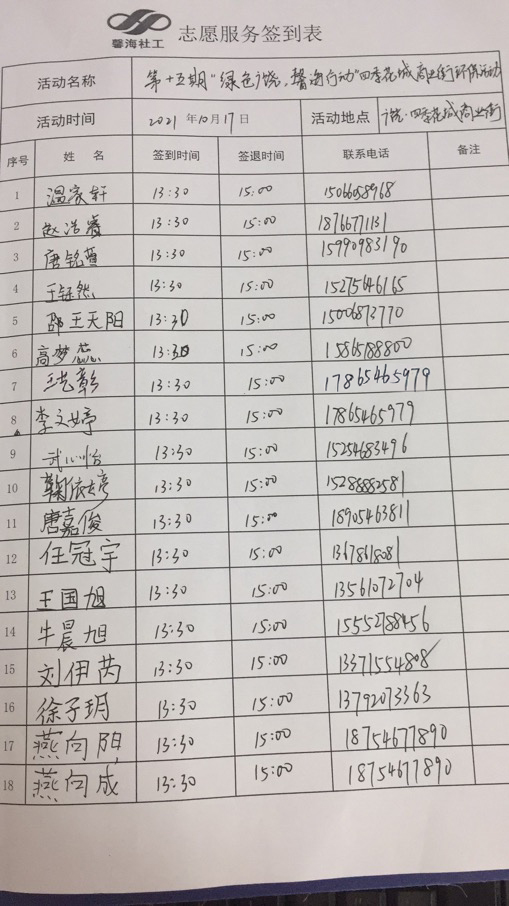 馨海社工 志愿服务签到表
活动名称 第十五期"绿色广饶，馨海行动"四季花城商业街环保活动
活动时间 2021年10月17日 活动地点 广饶·四季花城商业街
序号 姓名 签到时间 签退时间 联系电话 备注
1 温家轩 13:30 15:00 15066058968
2 赵浩睿 13:30 15:00 18766771131
3 唐铭萱 13:30 15:00 15990983190
4 王钰然 13:30 15:00 15275646165
5 邵王天阳 13:30 15:00 15006873770
6 高梦蕊 13:30 15:00 15865188800
7 13:30 15:00 17865465979
8 李文婷 13:30 15:00 17865465979
9 武心怡 13:30 15:00 15254683496
10 鞠依婷 13:30 15:00 15288882581
11 唐嘉俊 13:30 15:00 18905463811
12 任冠宇 13:30 15:00 13678618081
13 王国旭 13:30 15:00 13561072704
14 牛晨旭 13:30 15:00 15552788456
15 刘伊芮 13:30 15:00 13371554808
16 徐子玥 13:30 15:00 13792073363
17 燕向阳 13:30 15:00 18754677890
18 燕向成 13:30 15:00 18754677890